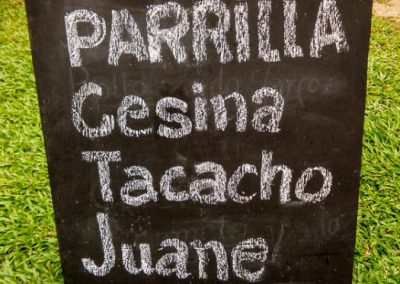 PARRILLA
Cesina
Tacacho
Juane